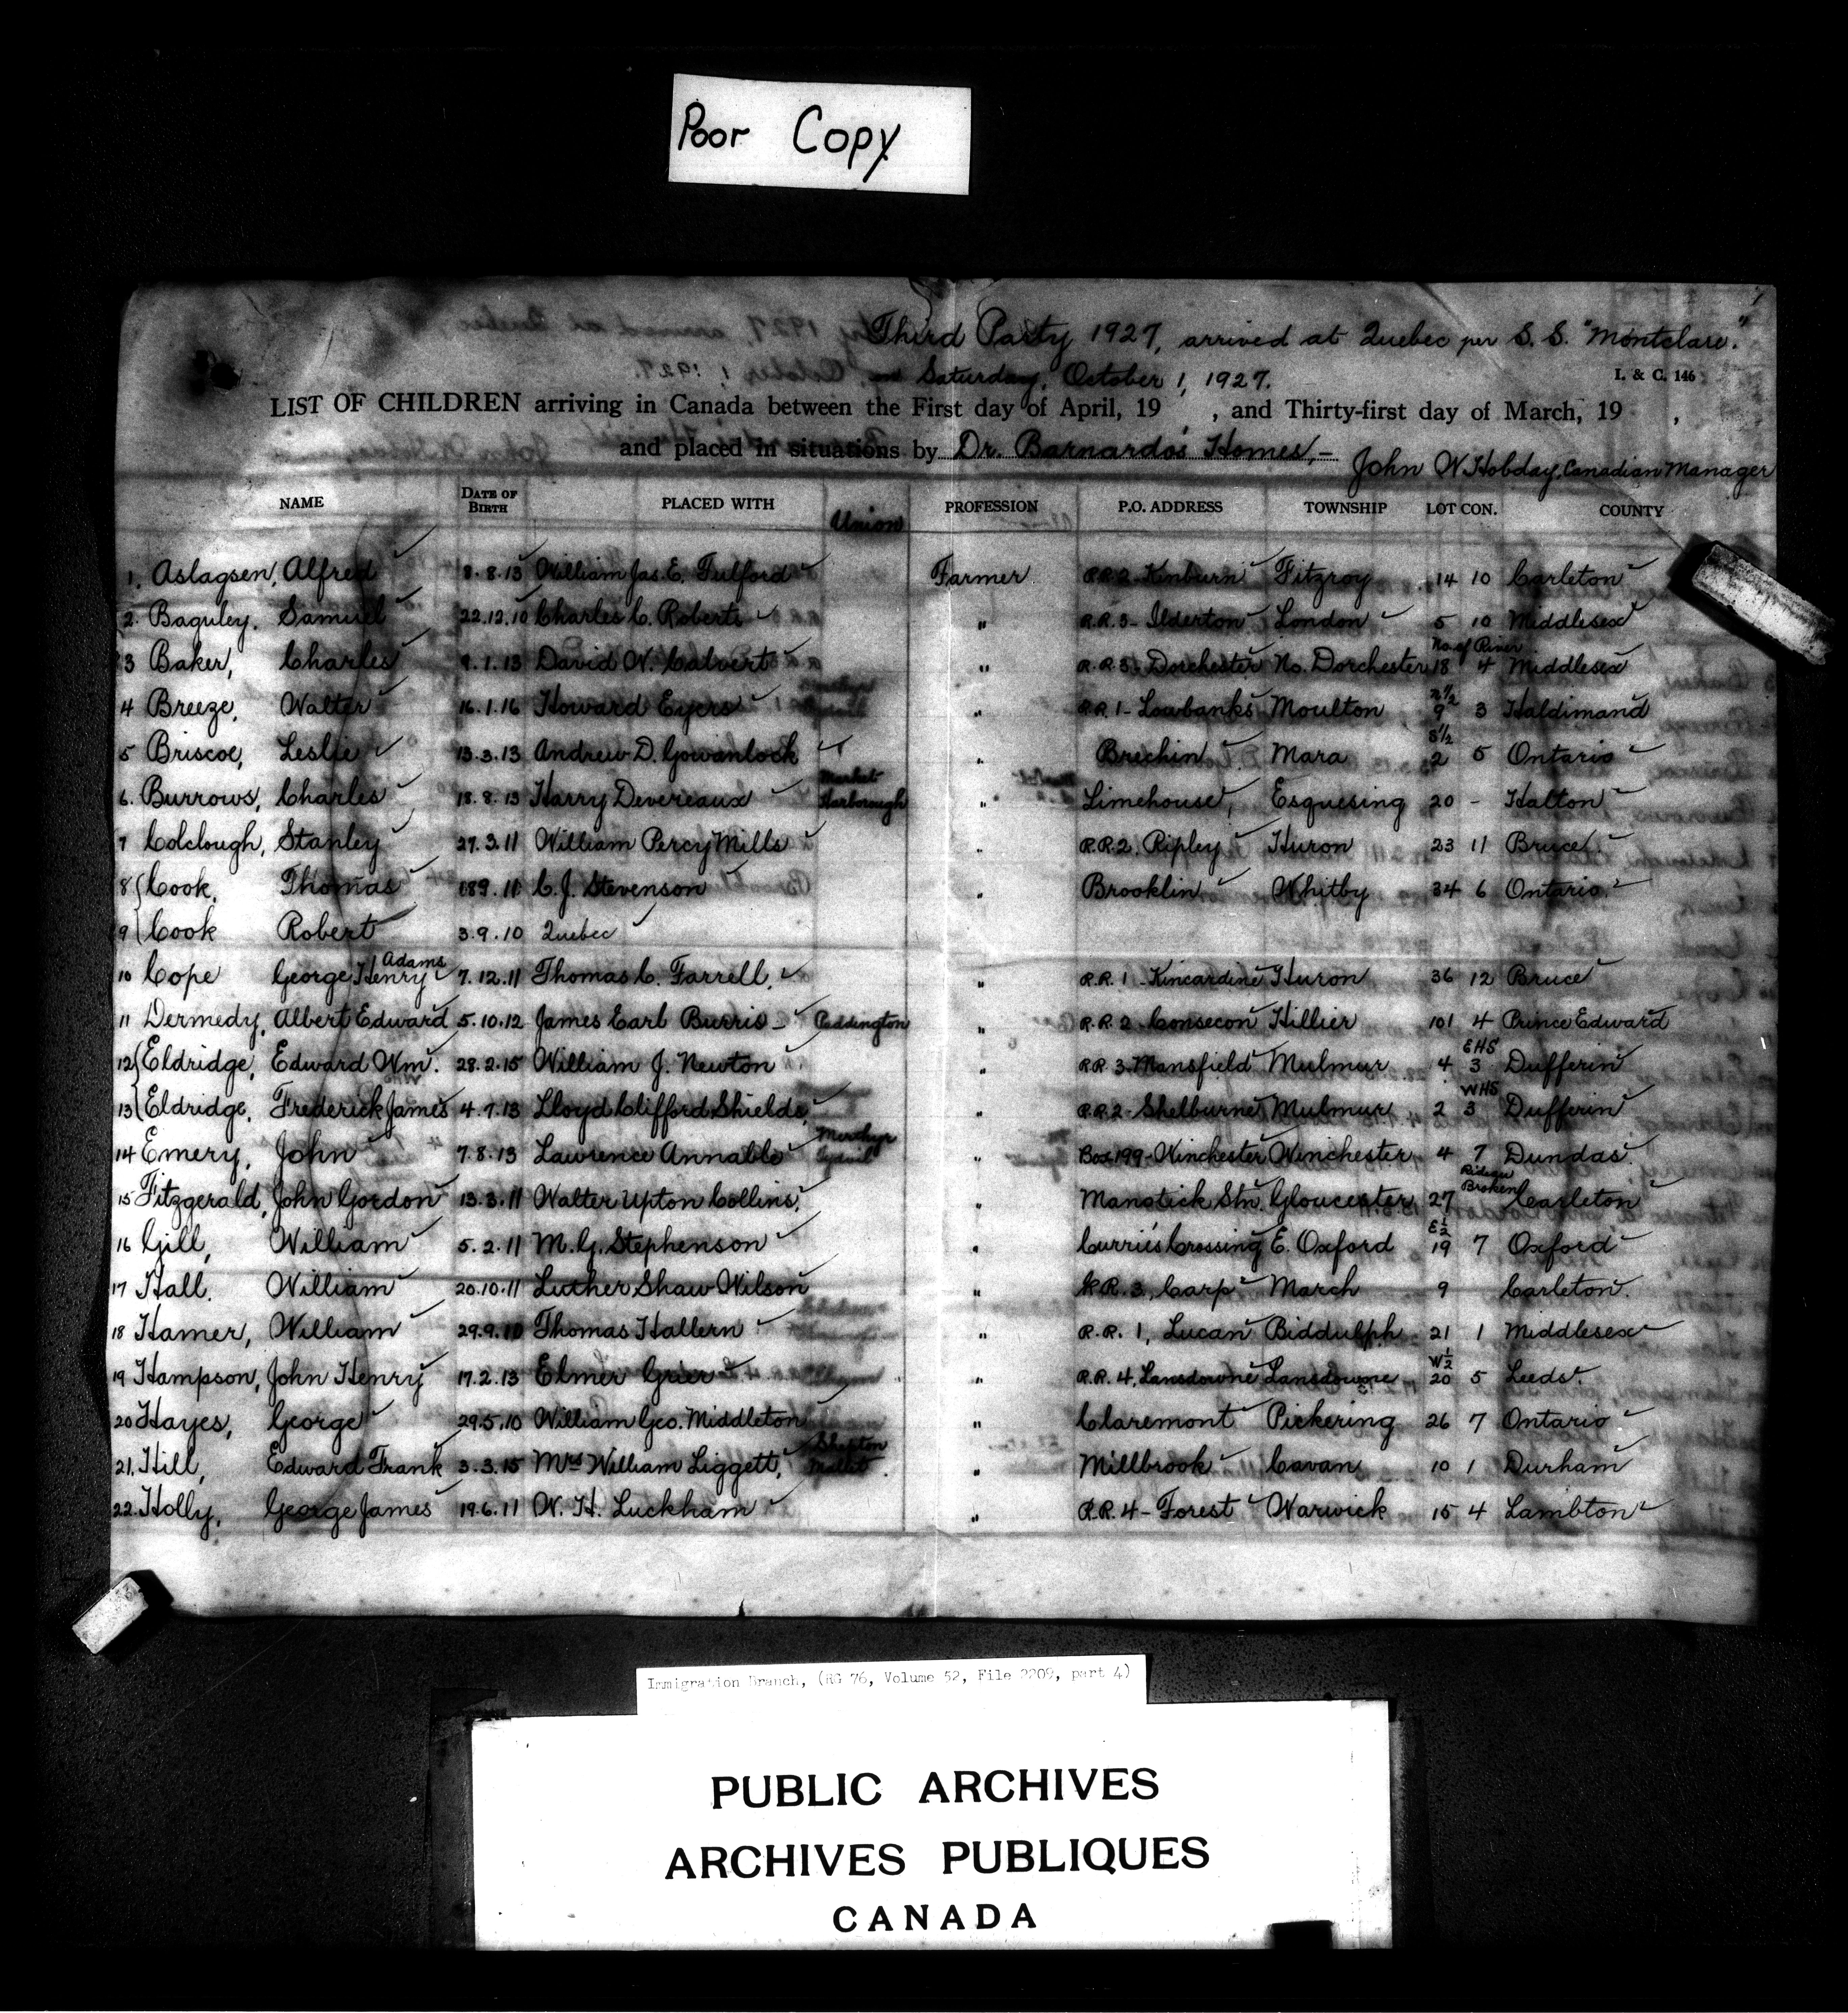 Poor Copy
Third Party 1927, arrived at Quebec per S. S. "Montclare."
Saturday, October 1, 1927.
I. & C. 146
LIST OF CHILDREN arriving in Canada between the First day of April, 19 , and Thirty-first day of March, 19 ,
and placed in situations by Dr. Barnardo's Homes,-
John W Hobday, Canadian Manager
NAME DATE OF BIRTH PLACED WITH Union PROFESSION P.O. ADDRESS TOWNSHIP LOT CON. COUNTY
1. Aslagsen, Alfred 8.8.13 William Jas. E. Fulford Farmer R.R.2 Kinburn Fitzroy 14 10 Carleton
2. Baguley, Samuel 22.12.10 Charles C. Roberts " R.R.3- Ilderton London 5 10 Middlesex
3 Baker, Charles 9.1.13 David W. Calvert " R.R.3- Dorchester No. Dorchester 18 No. of River 4 Middlesex
4 Breeze, Walter 16.1.16 Howard Eyers " R.R.1- Lowbanks Moulton 9 3 Haldimand
5 Briscoe, Leslie 13.3.13 Andrew D. Gowanlock " Brechin Mara S½ 2 5 Ontario
6. Burrows, Charles 18.8.13 Harry Devereaux Market Harborough " Limehouse, Esquesing 20 - Halton
7 Colclough, Stanley 27.3.11 William Percy Mills " R.R.2, Ripley Huron 23 11 Bruce
8 Cook, Thomas 189.11 C. J. Stevenson " Brooklin Whitby 34 6 Ontario
9 Cook Robert 3.9.10 Quebec
10 Cope George Henry Adams 7.12.11 Thomas C. Farrell, " R.R. 1 - Kincardine Huron 36 12 Bruce
11 Dermedy, Albert Edward 5.10.12 James Earl Burris - Paddington " R.R.2 Consecon Hillier 101 4 Prince Edward
12 Eldridge, Edward Wm. 28.2.15 William J. Newton " R.R.3. Mansfield Mulmur 4 EHS 3 Dufferin
13 Eldridge, Frederick James 4.7.13 Lloyd Clifford Shields, " R.R.2- Shelburne Mulmur 2 WHS 3 Dufferin
14 Emery, John 7.8.13 Lawrence Annable Merthyr Tydvil " Box 199- Winchester Winchester 4 7 Dundas
15 Fitzgerald, John Gordon 13.3.11 Walter Upton Collins, Manotick Stn. Gloucester 27 Rideau Broken Carleton
16 Gill, William 5.2.11 M. G. Stephenson " Currie's Crossing E. Oxford E½ 19 7 Oxford
17 Hall. William 20.10.11 Luther Shaw Wilson " R.R. 3, Carp March 9 Carleton.
18 Hamer, William 29.9.10 Thomas Hallern " R.R. 1, Lucan Biddulph 21 1 Middlesex
19 Hampson, John Henry 17.2.13 Elmer Grier " R.R. 4, Lansdowne Lansdowne W½ 20 5 Leeds.
20 Hayes, George 29.5.10 William Geo. Middleton " Claremont Pickering 26 7 Ontario
21. Hill, Edward Frank 3.3.15 Mrs William Liggett, Shepton Mallet. " Millbrook Cavan 10 1 Durham
22. Holly, George James 19.6.11 W. H. Luckham " R.R. 4- Forest Warwick 15 4 Lambton
Immigration Branch, (RG 76, Volume 52, File 2209, part 4)
PUBLIC ARCHIVES
ARCHIVES PUBLIQUES
CANADA